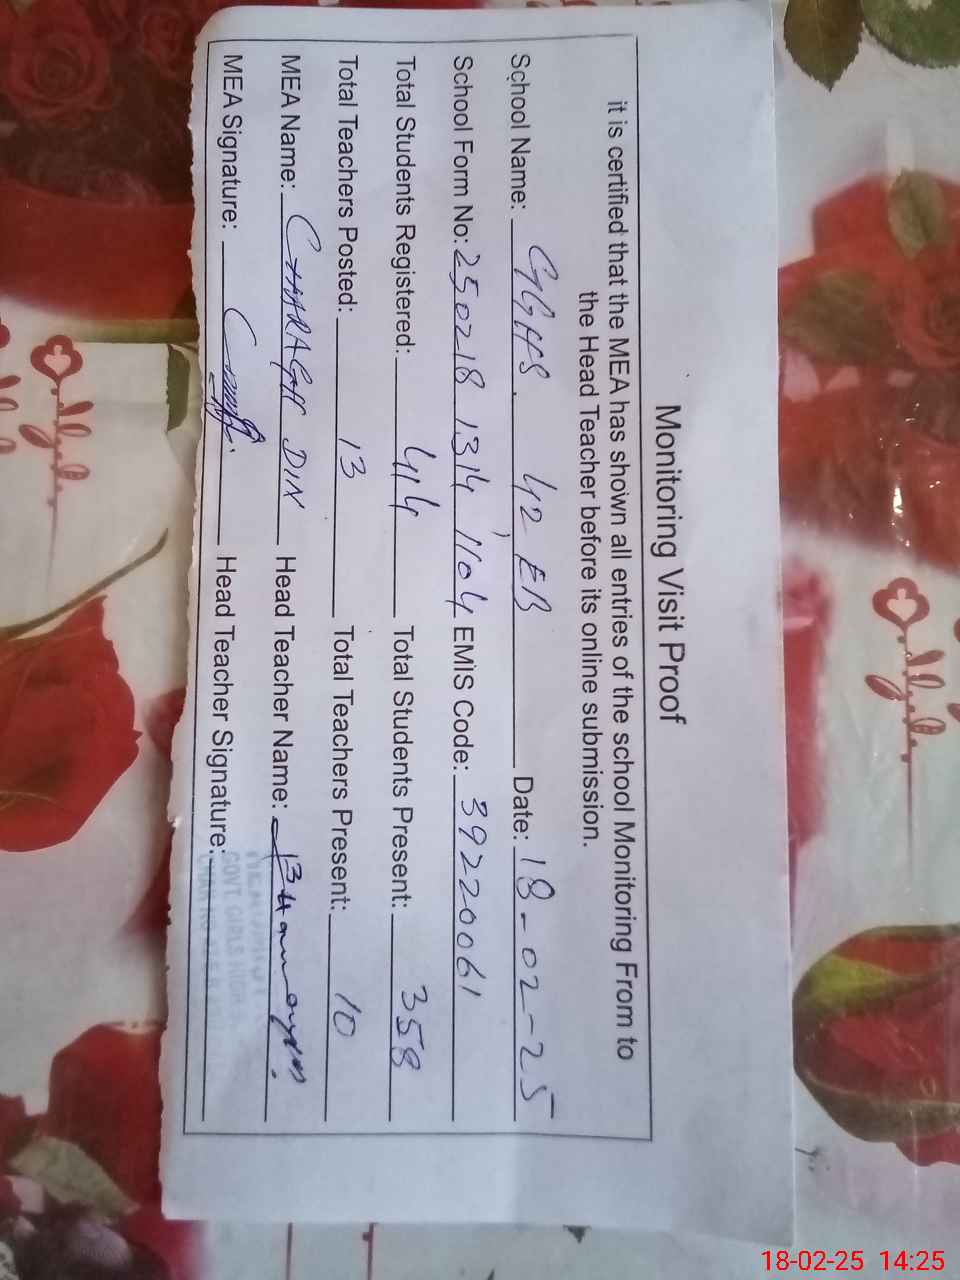 Monitoring Visit Proof
it is certified that the MEA has shown all entries of the school Monitoring From to
the Head Teacher before its online submission.
School Name: GGHS. 42 EB Date: 18-02-25
School Form No: 250218 1314 1104 EMIS Code: 39220061
Total Students Registered: 414 Total Students Present: 358
Total Teachers Posted: 13 Total Teachers Present: 10
MEA Name: CHARAGH DIN Head Teacher Name:
MEA Signature: Head Teacher Signature:
GOVT. GIRLS HIGH
18-02-25 14:25